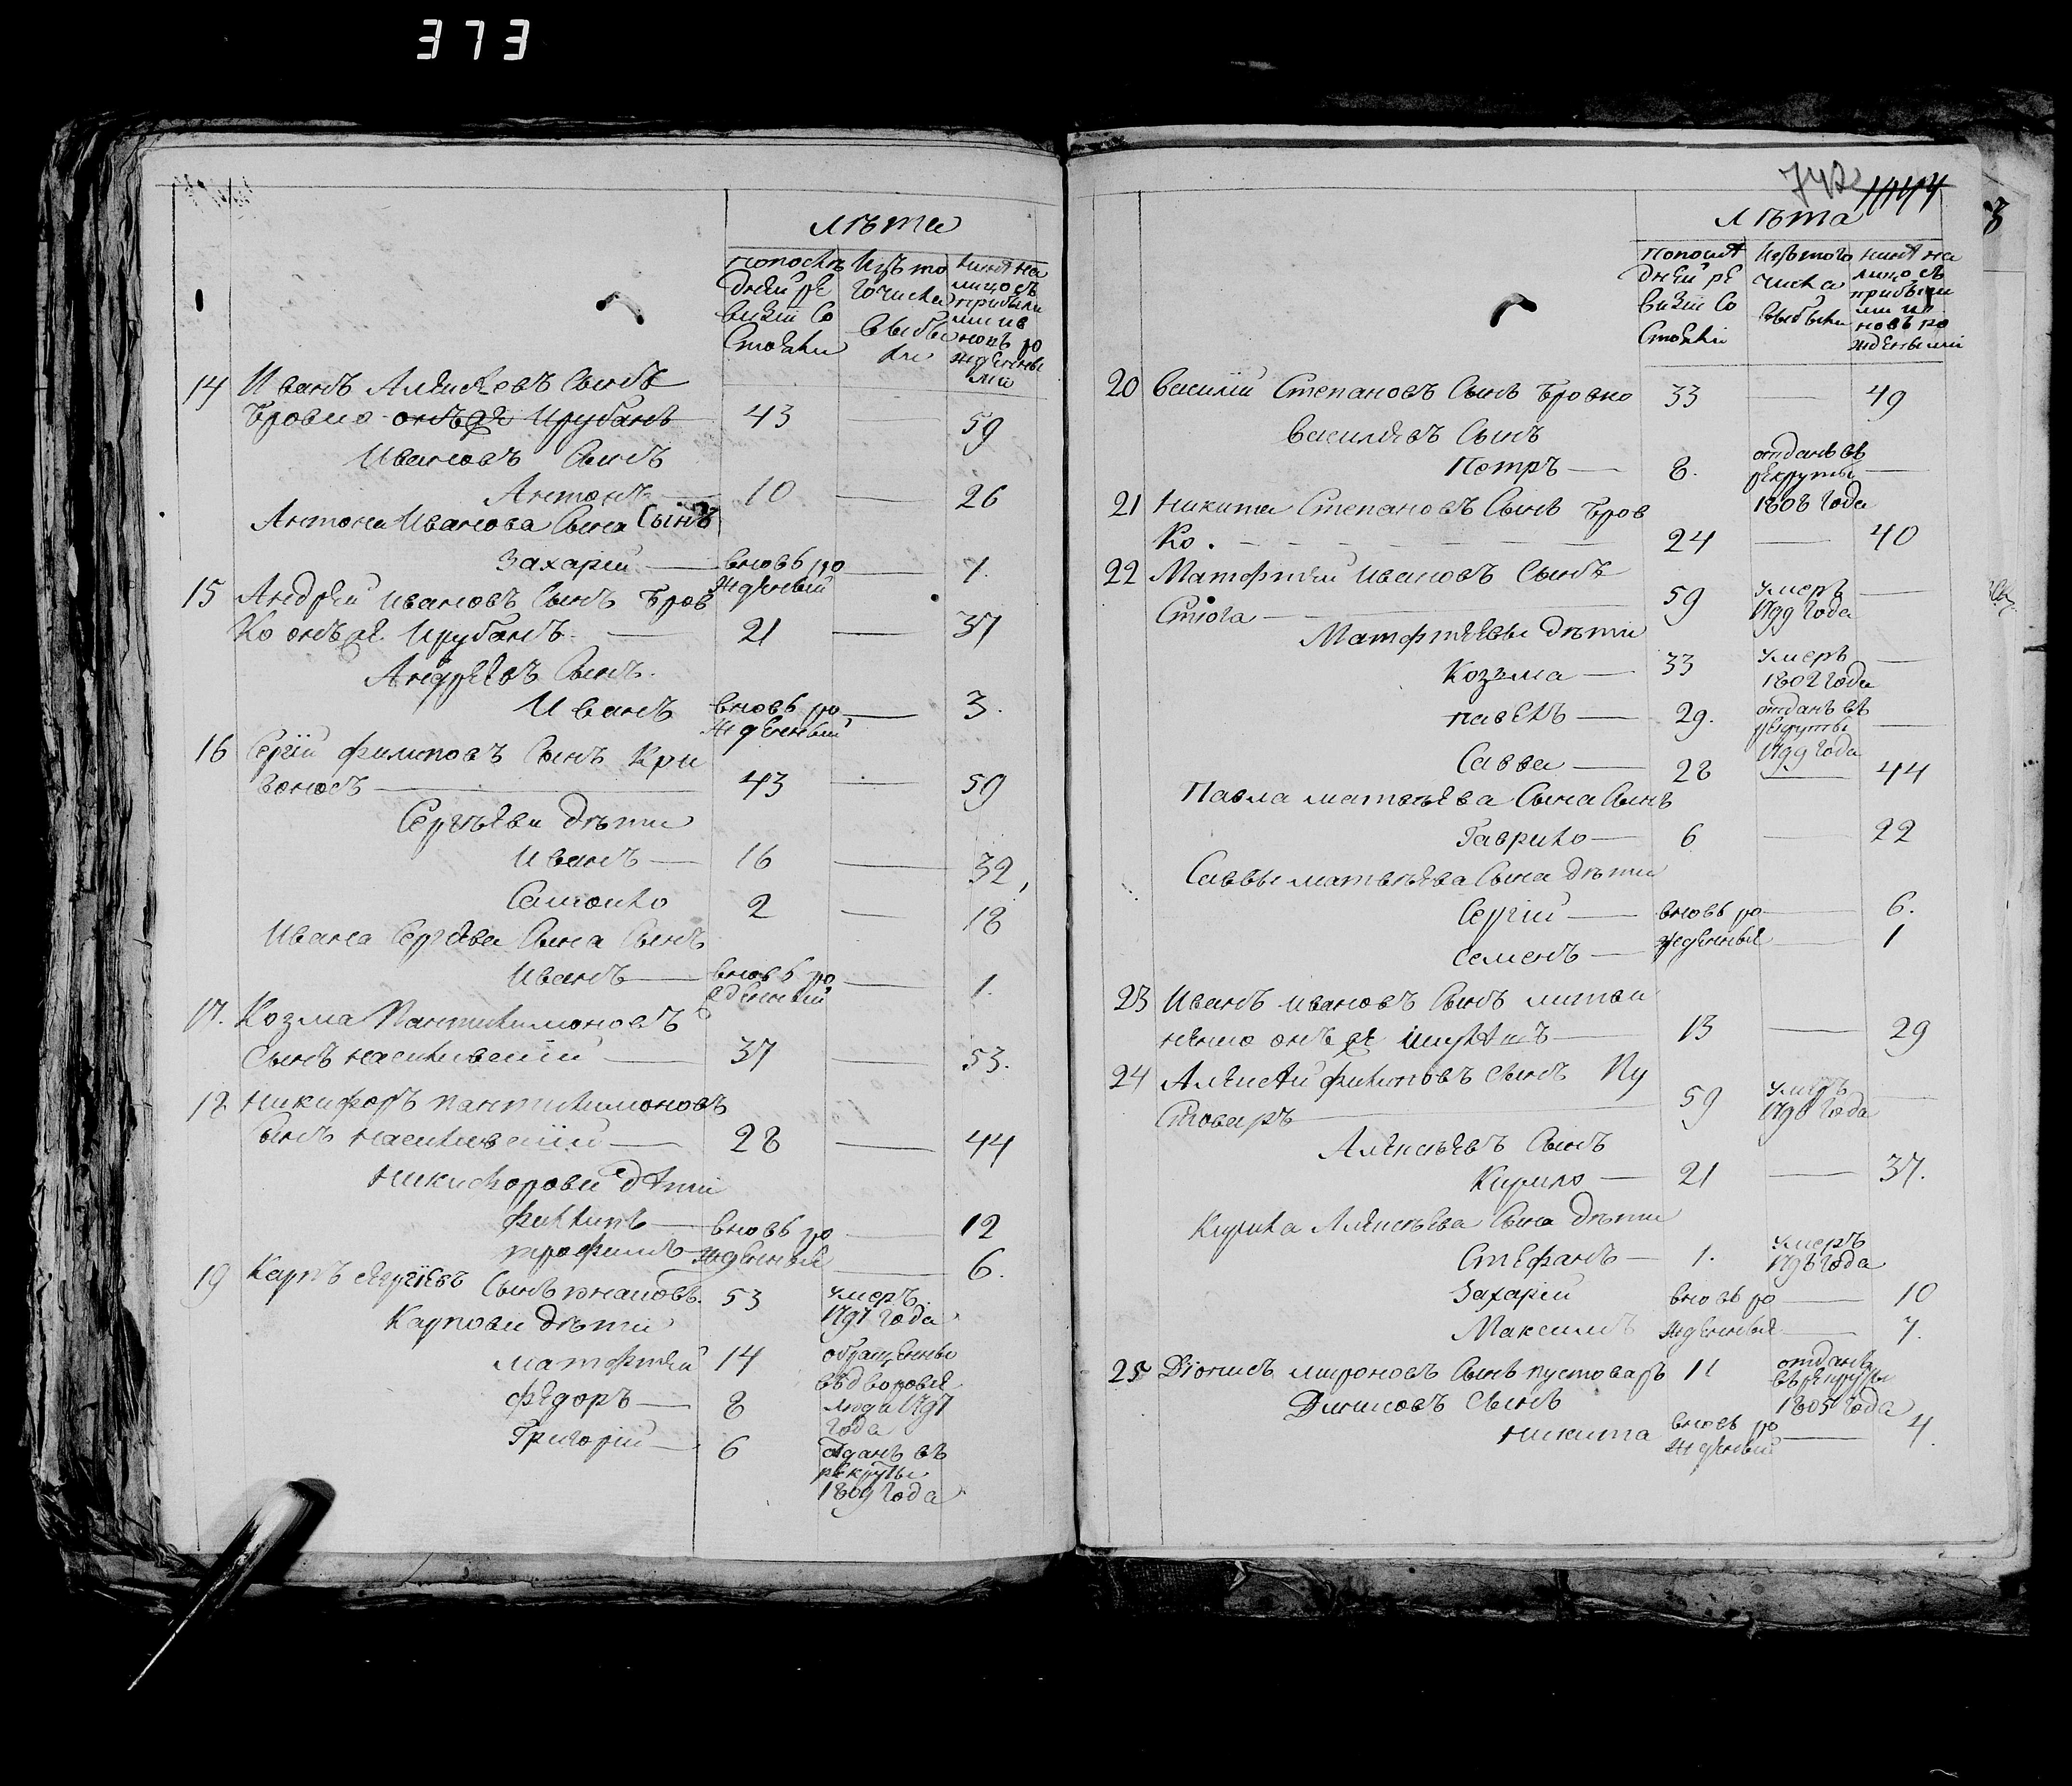 373
лѣта
попослѣ
дней ре
визіи Со
Стояли
изъ то
го числа
выбы
ли
нинѣ на
лицо съ
прибыли
ми и в
новь ро
жденны
ми
14 Иванъ Алексѣевъ Сынъ
Бровко онъ же Ирубанъ 43 — 59
Ивановъ Сынъ
Антонъ — 10 — 26
Антона Иванова Сына Сынъ
Захарій — вновь ро — 1.
жденный
15 Андрей Ивановъ Сынъ Бров
ко онъ же Ирубанъ — 21 — 37
Андреевъ Сынъ.
Иванъ вновь ро — 3.
жденный
16 Сергій Филиповъ Сынъ Кри
воносъ — 43 — 59
Сергѣеви дѣти
Иванъ — 16 — 32,
Самойло 2 — 18
Ивана Сергѣева Сына Сынъ
Иванъ — вновь ро — 1.
жденный
17. Козма Пантилимоновъ
Сынъ — 37 — 53.
18 Никифоръ Пантилимоновъ
Сынъ — 28 — 44
Никифорови дѣти
Филипъ — вновь ро — 12
Трофимъ — жденные — 6.
19 Карпъ Сергіевъ Сынъ 53 умеръ.
1797 года
Карпови дѣти
Матфѣй 14 обращенны
Федоръ — 8 въ дворовіе
люди 1797
года
Григорій — 6 отданъ въ
рекруты
1809 года
742 1144
3
лѣта
попослѣ
дней ре
визіи Со
Стояли
изъ того
числа
выбыли
нинѣ на
лицо съ
прибыли
ми и
новь ро
жденными
20 Василій Степановъ Сынъ Бровко 33 — 49
Васильевъ Сынъ
Петръ — 8. отданъ въ —
рекруты
1808 года
21 Никита Степановъ Сынъ Бров
Ко. — 24 — 40
22 Матфѣй Ивановъ Сынъ
Стюга — 59 умеръ —
1799 года
Матфѣеви дѣти
Козма — 33 умеръ —
1802 года
Павелъ — 29. отданъ въ —
рекруты
1799 года
Савва — 28 — 44
Павла Матвѣева Сына Сынъ
Гаврило — 6 — 22
Саввы Матвѣева Сына дѣти
Сергій — вновь ро — 6.
Семенъ — жденные — 1
23 Иванъ Ивановъ Сынъ Литви
ненко онъ же 13 — 29
24 Алексѣй Филиповъ Сынъ Пу
Стоваръ — 59 умеръ —
1796 года
Алексѣевъ Сынъ
Кирило — 21 — 37.
Кирила Алексѣева Сына дѣти
Стефанъ — 1. умеръ
1796 года
Захарій вновь ро — 10
Максимъ жденные — 7.
25 Діонисъ Мироновъ Сынъ Пустоваръ 11 отданъ
въ рекруты
1805 года
Динисовъ Сынъ
Никита вновь ро — 4.
жденный